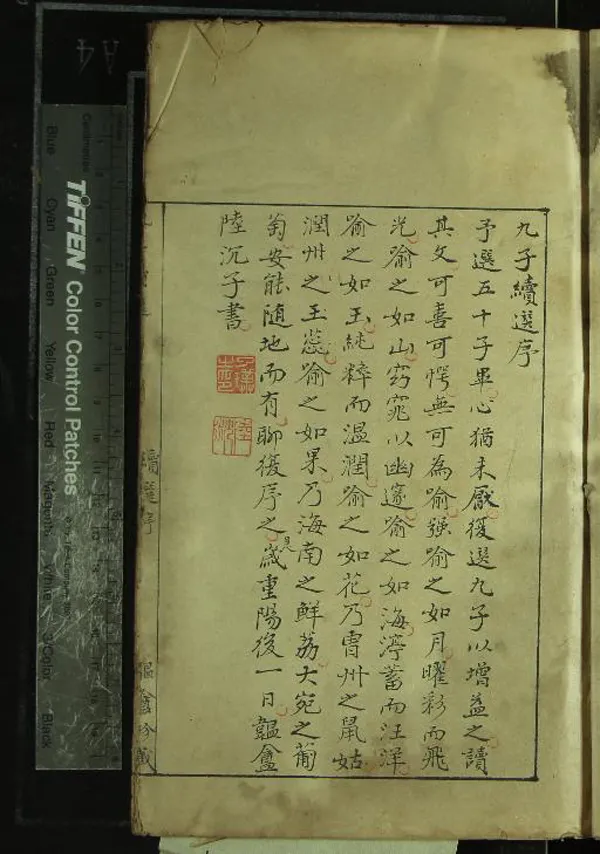 九子續選序
予選五十子畢心猶未厭復選九子以增益之讀
其文可喜可愕無可為喻强喻之如月曜彩而飛
光喻之如山窈窕以幽邃喻之如海渟蓄而汪洋
喻之如玉純粹而温潤喻之如花乃曹州之鼠姑
潤州之玉蕊喻之如果乃海南之鮮荔大宛之葡
萄安能随地而有聊復序之是歲重陽後一日韞盦
陸沉子書
續選序
韞盦珍藏
A4
TIFFEN Color Control Patches
Centimetres
Blue
Cyan
Green
Yellow
Red
Magenta
White
3/Color
Black